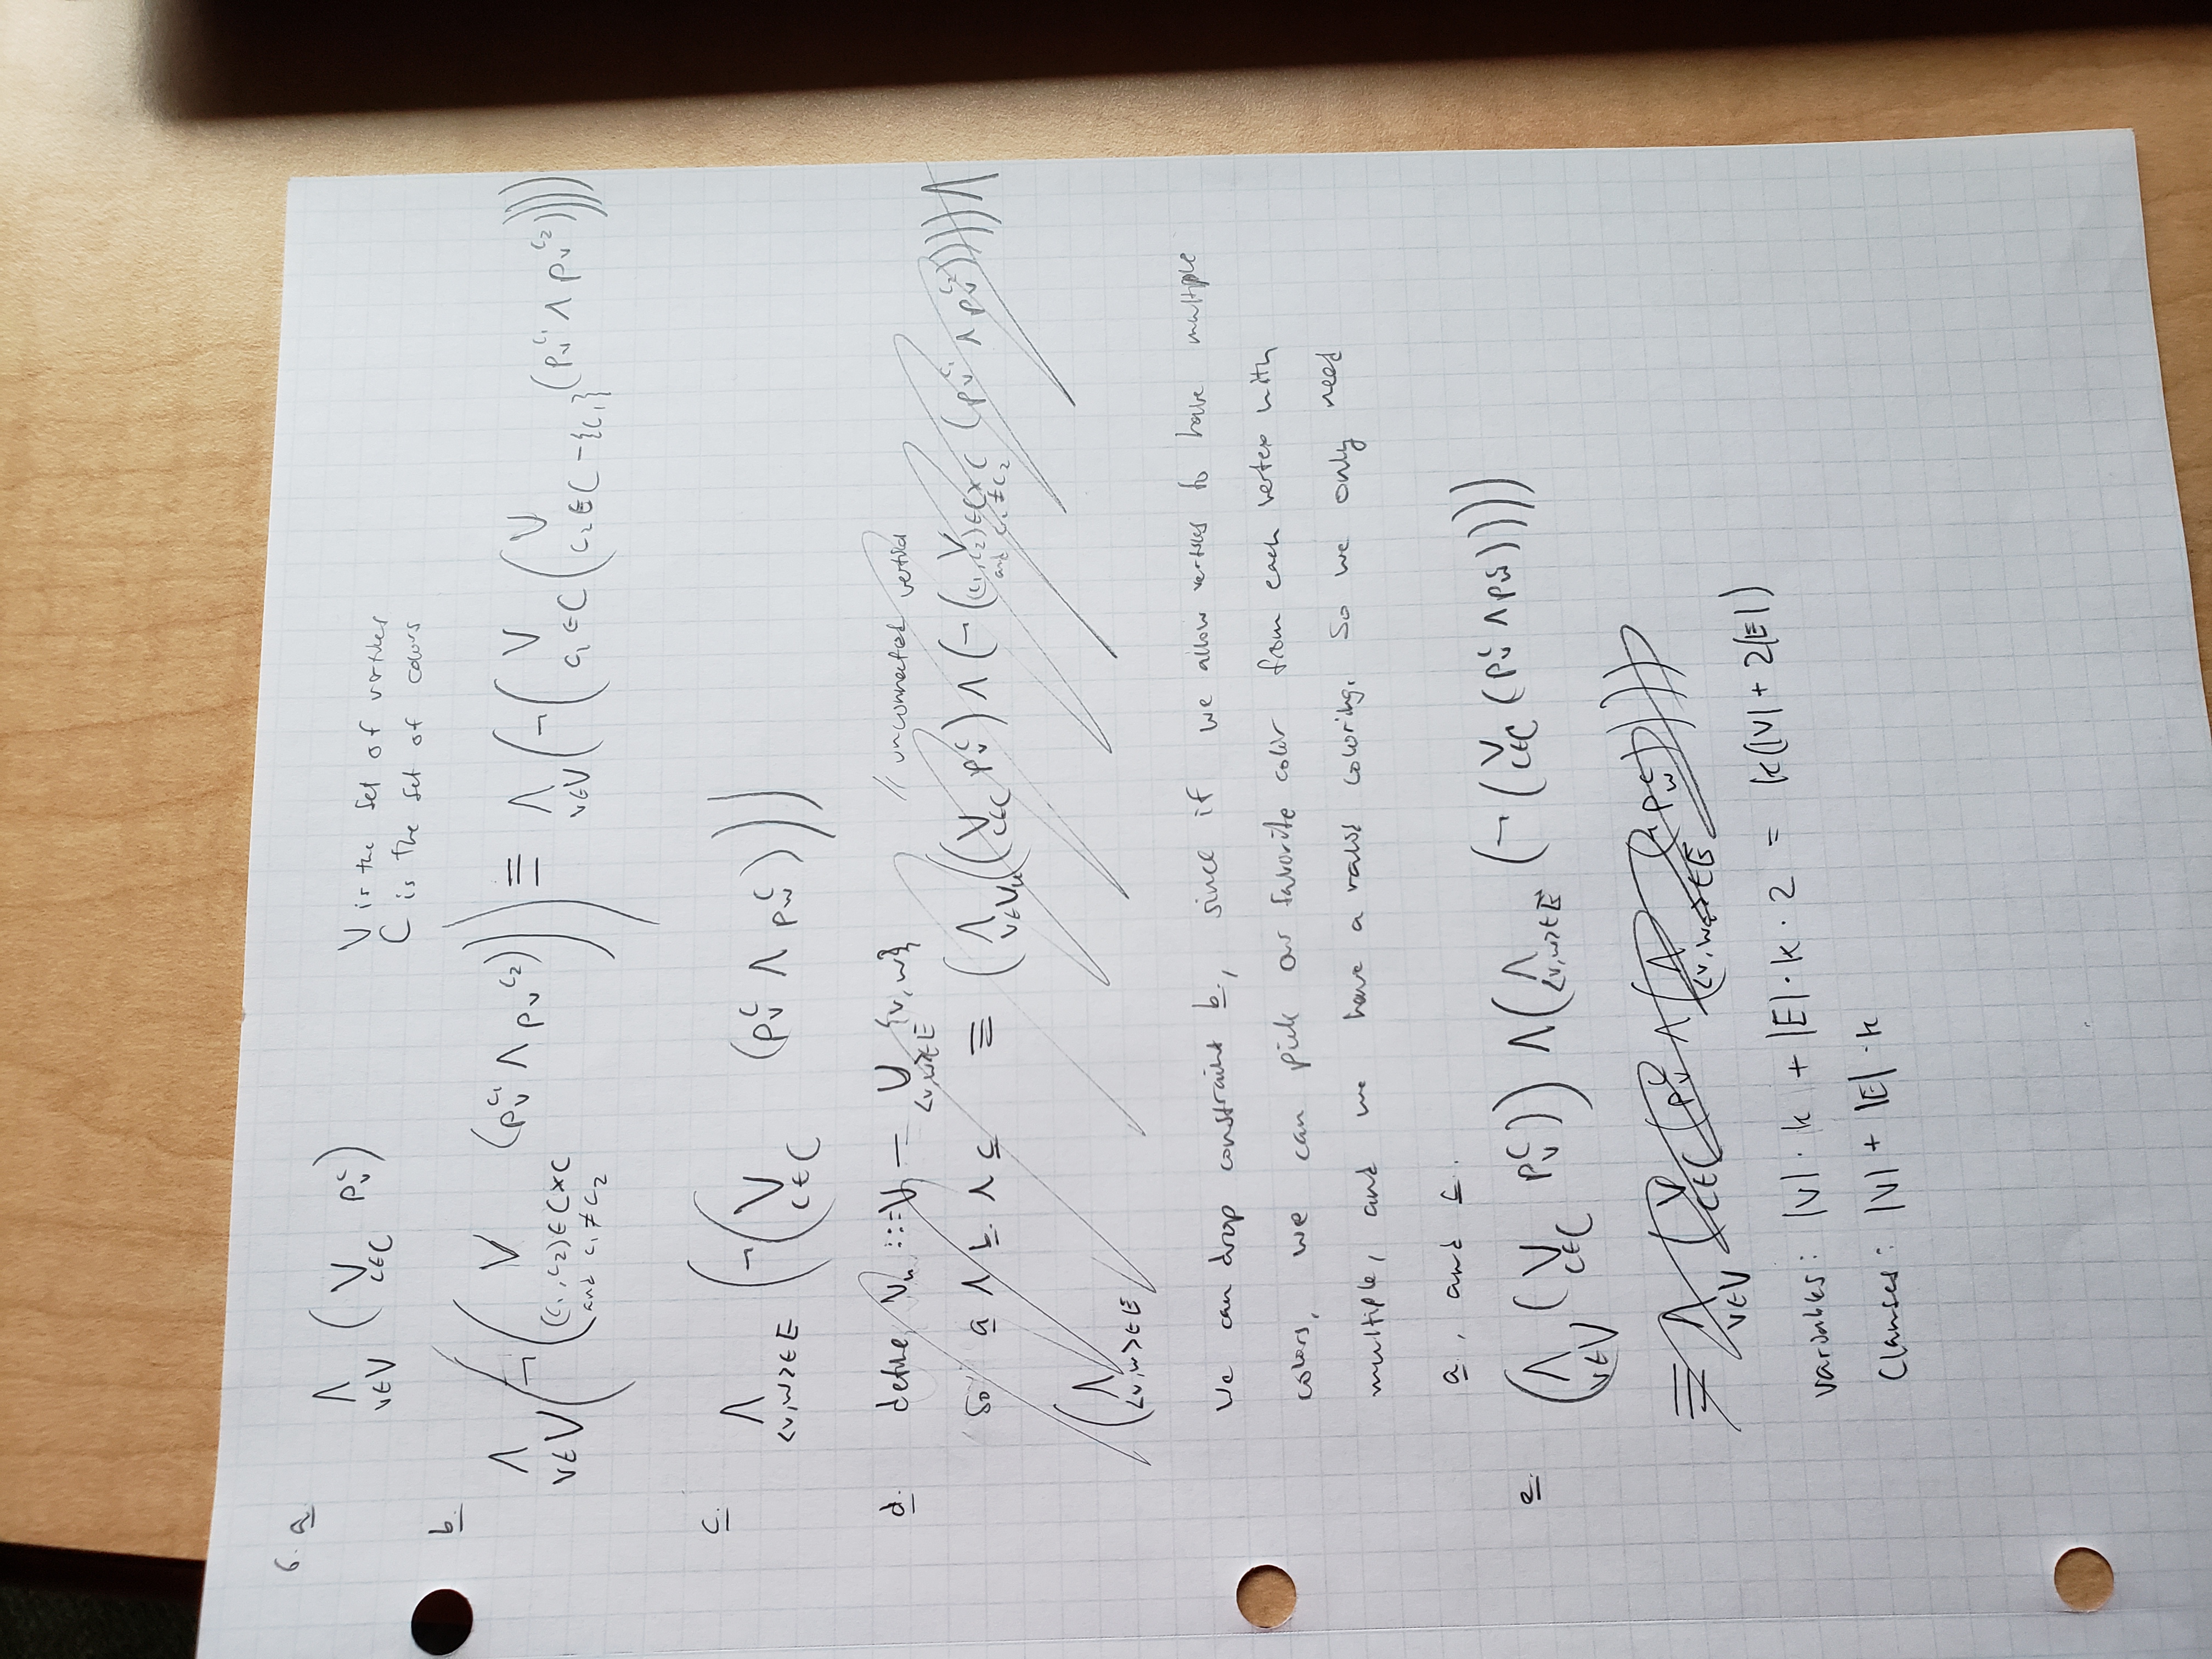 6. a.
⋀_{v∈V} ( ⋁_{c∈C} p_v^c )
V is the set of vertices
C is the set of colors
b.
⋀_{v∈V} ( ¬ ( ⋁_{(c₁,c₂)∈C×C and c₁≠c₂} (p_v^{c₁} ∧ p_v^{c₂}) ) ) ≡ ⋀_{v∈V} ( ¬ ( ⋁_{c₁∈C} ( ⋁_{c₂∈C−{c₁}} (p_v^{c₁} ∧ p_v^{c₂}) ) ) )
c. ⋀_{<v,w>∈E} ( ¬ ( ⋁_{c∈C} (p_v^c ∧ p_w^c) ) )
d. define V_u ::=V − ⋃_{<v,w>∈E} {v,w} // unconnected
so a ∧ b. ∧ c ≡ ( ⋀_{v∈V_u} ( ( ⋁_{c∈C} p_v^c ) ∧ ( ¬ ( ⋁_{(c₁,c₂)∈C×C and c₁≠c₂} (p_v^{c₁} ∧ p_v^{c₂}) ) ) ) ) ∧
( ⋀_{<v,w>∈E}
We can drop constraint b., since if we allow vertices to have multiple
colors, we can pick our favorite color from each vertex with
multiple, and we have a valid coloring. So we only need
a., and c.
e. ( ⋀_{v∈V} ( ⋁_{c∈C} p_v^c ) ) ∧ ( ⋀_{<v,w>∈E} ( ¬ ( ⋁_{c∈C} (p_v^c ∧ p_w^c) ) ) )
≡ ⋀_{v∈V} ( ⋁_{c∈C} ( p_v^c ∧ ( ⋀_{∈E} p_w^c ) ) )
variables: |V| · k + |E| · k · 2 = k(|V| + 2|E|)
Clauses: |V| + |E| · k